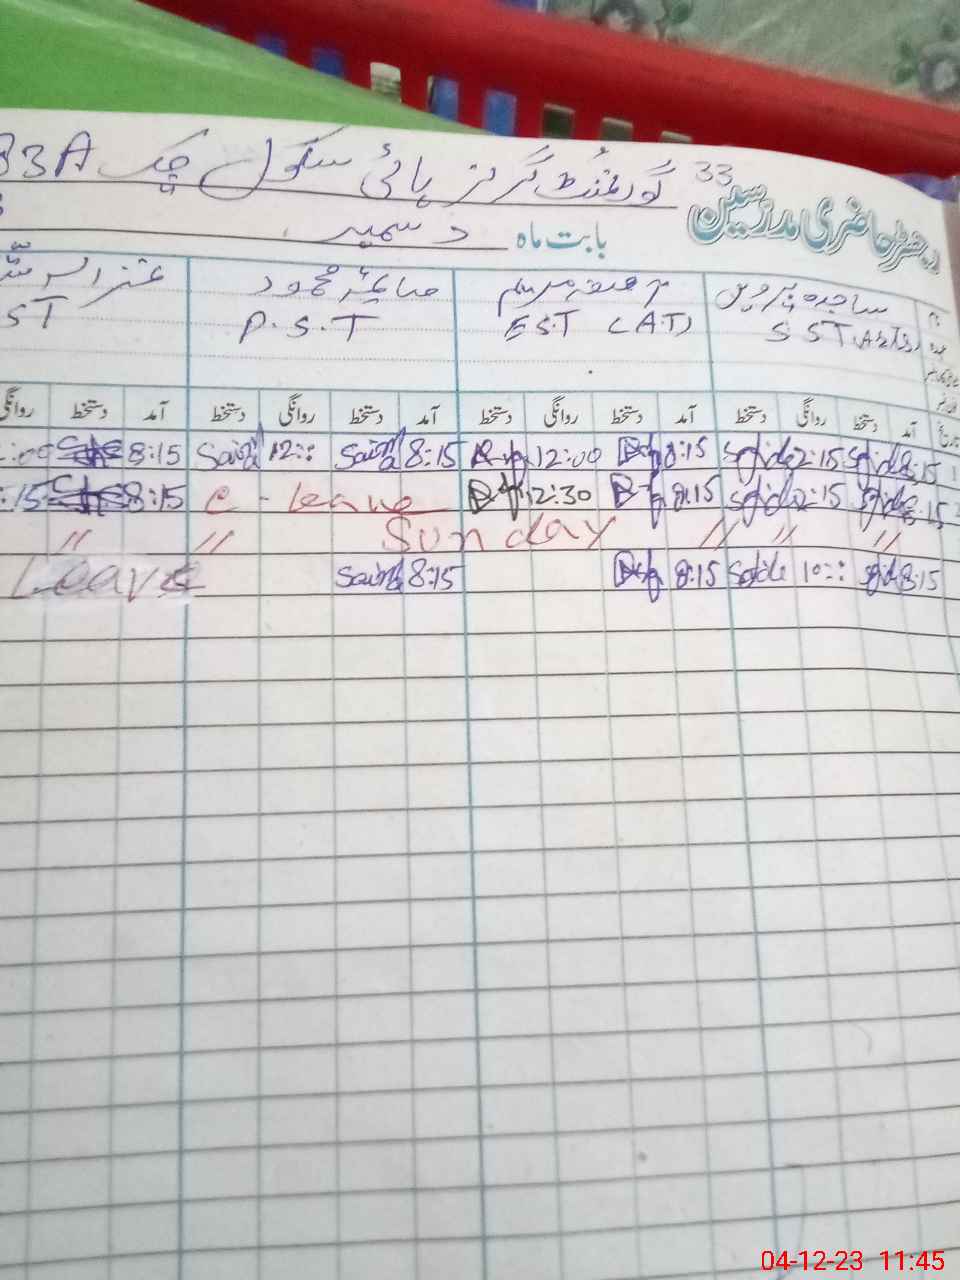 33
دفتر حاضری مدرسین گورنمنٹ گرلز ہائی سکول چک 33A
بابت ماہ دسمبر
ساجدہ پروین صائمہ محمود
SST (Arts) E.S.T (A.T) P.S.T ST
آمد دستخط روانگی دستخط آمد دستخط روانگی دستخط آمد دستخط روانگی دستخط آمد دستخط روانگی
:00 8:15 Saima 12:: Saima 8:15 12:00 8:15 Sajida 2:15 Sajida 8:15 1
:15 8:15 C-Leave 12:30 8:15 Sajida 2:15 Sajida 8:15 2
〃 〃 Sunday 〃 〃 〃
Leave Saima 8:15 8:15 Sajida 10:: Sajida 8:15
04-12-23 11:45